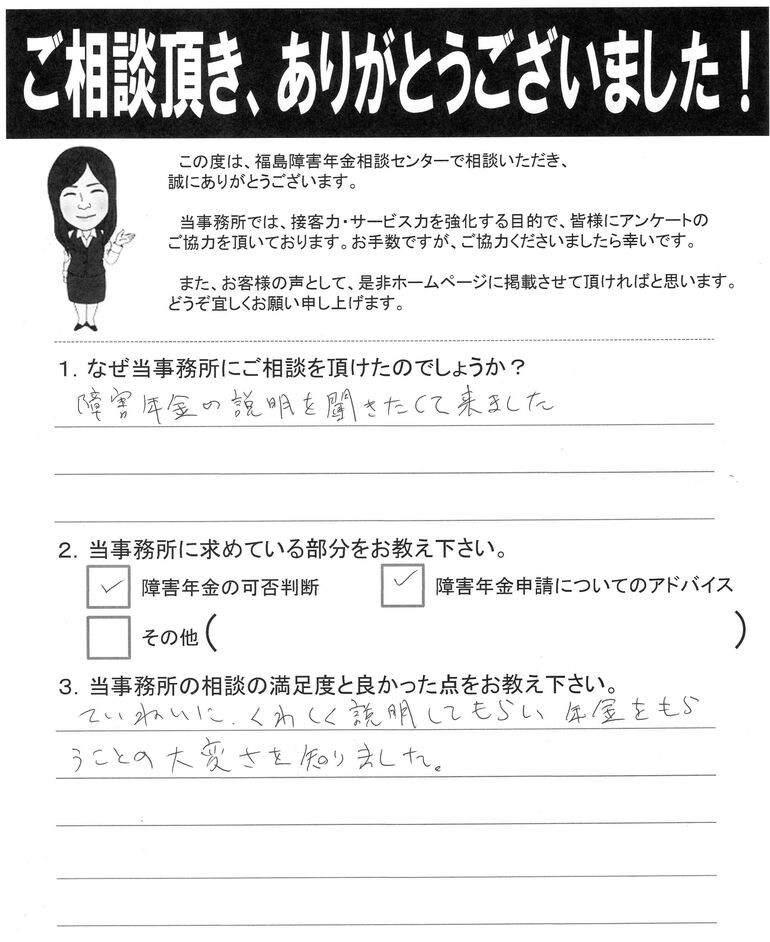 ご相談頂き、ありがとうございました！
この度は、福島障害年金相談センターで相談いただき、
誠にありがとうございます。
当事務所では、接客力・サービス力を強化する目的で、皆様にアンケートの
ご協力を頂いております。お手数ですが、ご協力くださいましたら幸いです。
また、お客様の声として、是非ホームページに掲載させて頂ければと思います。
どうぞ宜しくお願い申し上げます。
1．なぜ当事務所にご相談を頂けたのでしょうか？
障害年金の説明を聞きたくて来ました
2．当事務所に求めている部分をお教え下さい。
障害年金の可否判断 障害年金申請についてのアドバイス
その他（ ）
3．当事務所の相談の満足度と良かった点をお教え下さい。
ていねいに、くわしく説明してもらい 年金をもら
うことの大変さを知りました。